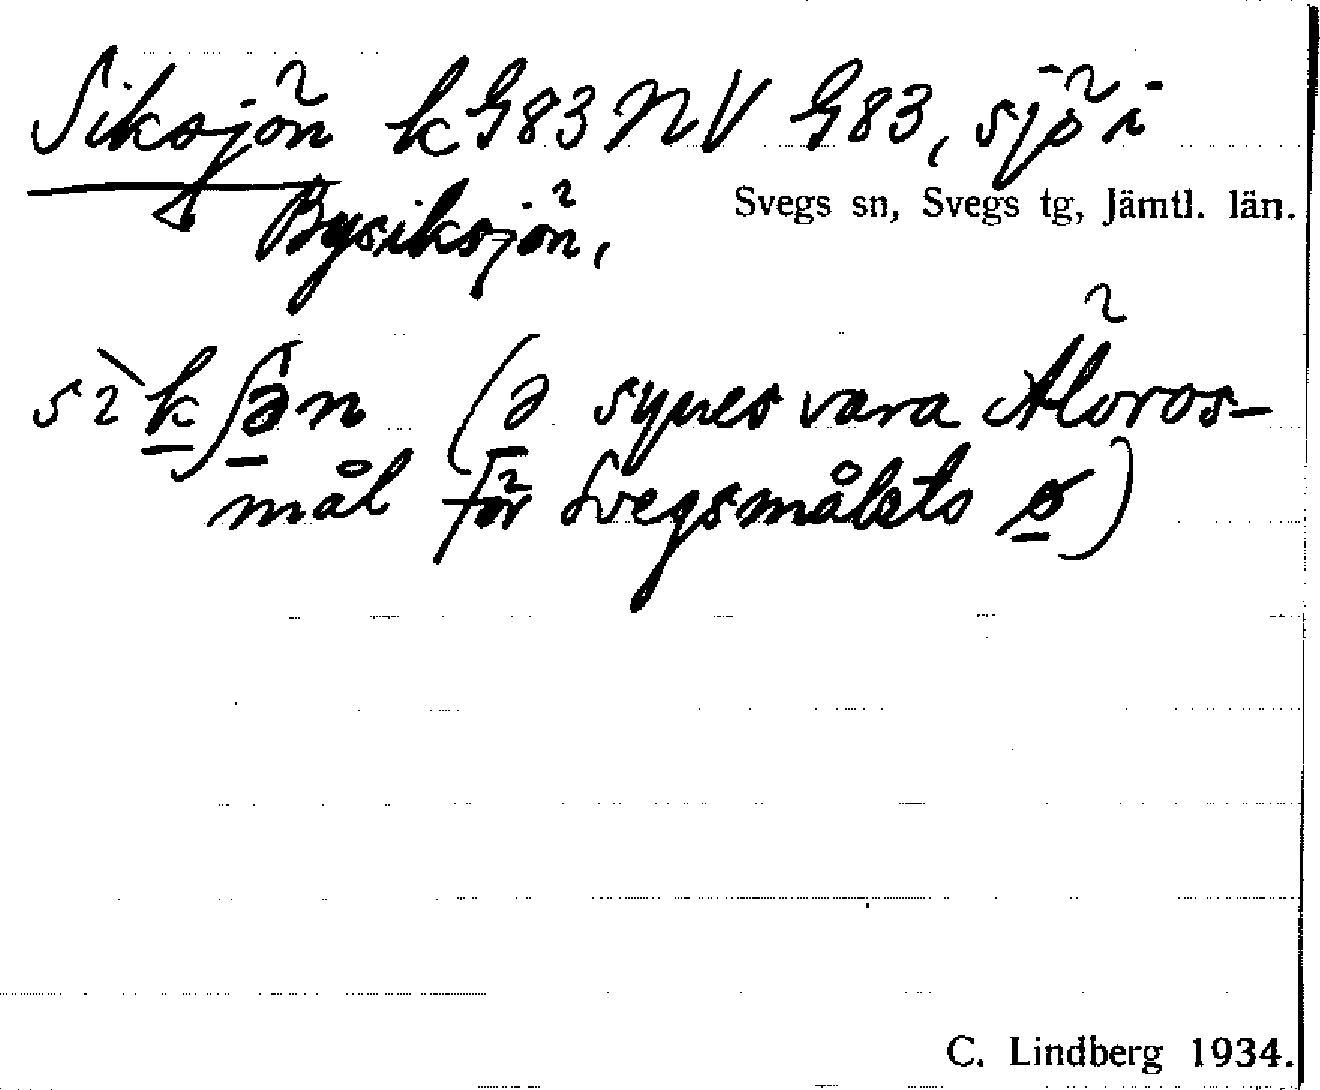 Siksjön k G83 NV G83, sjö i
Bysiksjön,
Svegs sn, Svegs tg, Jämtl. län.
(ə synes vara Älvros-
mål för Svegsmålets ø)
C. Lindberg 1934.